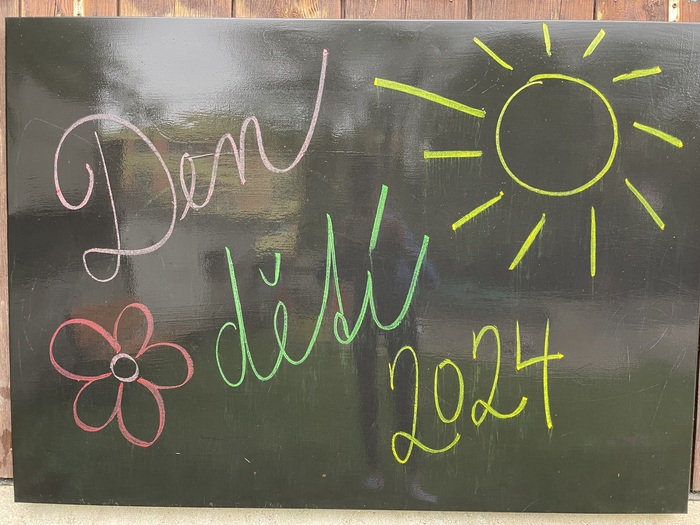 Den
dětí
2024